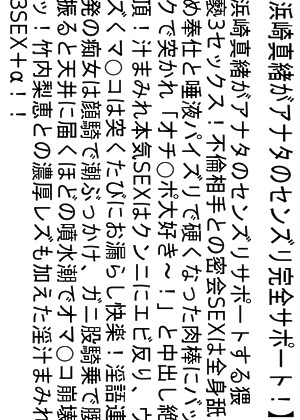 浜崎真緒がアナタのセンズリ完全サポート！】
浜崎真緒がアナタのセンズリサポートする猥
褻3セックス！不倫相手との密会SEXは全身舐
め奉仕と唾液パイズリで硬くなった肉棒にバッ
クで突かれ「オチ○ポ大好き～！」と中出し絶
頂！汁まみれ本気SEXはクンニにエビ反り、ウ
ズくマ○コは突くたびにお漏らし快楽！淫語連
発の痴女は顔騎で潮ぶっかけ、ガニ股騎乗で腰
振ると天井に届くほどの噴水潮でオマ○コ崩壊
ッ！竹内梨恵との濃厚レズも加えた淫汁まみれ
3SEX＋α！！